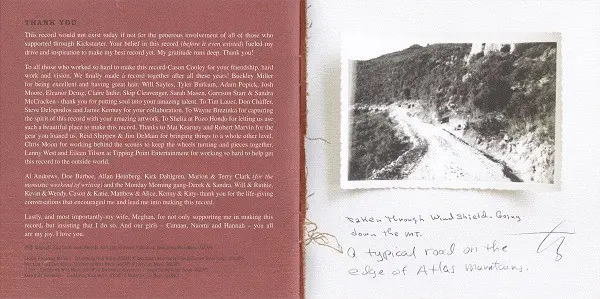 THANK YOU
This record would not exist today if not for the generous involvement of all of those who
supported through Kickstarter. Your belief in this record (before it even existed) fueled my
drive and inspiration to make my best record yet. My gratitude runs deep. Thank you!
To all those who worked so hard to make this record-Cason Cooley for your friendship, hard
work and vision. We finally made a record together after all these years! Buckley Miller
for being excellent and having great hair. Will Sayles, Tyler Burkum, Adam Popick, Josh
Moore, Eleanor Denig, Claire Indie, Skip Cleavinger, Sarah Masen, Garrison Starr & Sandra
McCracken - thank you for putting soul into your amazing talent. To Tim Lauer, Don Chaffer,
Steve Delopoulos and Jamie Kenney for your collaboration. To Wayne Brezinka for capturing
the spirit of this record with your amazing artwork. To Shelia at Pozo Hondo for letting us use
such a beautiful place to make this record. Thanks to Mat Kearney and Robert Marvin for the
gear you loaned us. Reid Shippen & Jim DeMain for bringing things to a whole other level.
Chris Moon for working behind the scenes to keep the wheels turning and pieces together.
Lanny West and Eileen Tilson at Tipping Point Entertainment for working so hard to help get
this record to the outside world.
Al Andrews, Don Burbee, Allan Heinberg, Kirk Dahlgren, Marion & Terry Clark (for
the monsoon weekend of writing) and the Monday Morning gang-Derek & Sandra, Will & Ruthie,
Kevin & Wendy, Cason & Katie, Matthew & Alice, Kenny & Katy- thank you for the life-giving
conversations that encouraged me and lead me into making this record.
Lastly, and most importantly-my wife, Meghan, for not only supporting me in making this
record, but insisting that I do so. And our girls – Canaan, Naomi and Hannah – you all
are my joy. I love you.
Taken through windshield. Going
down the mt.
A typical road on the
edge of Atlas Mountains.